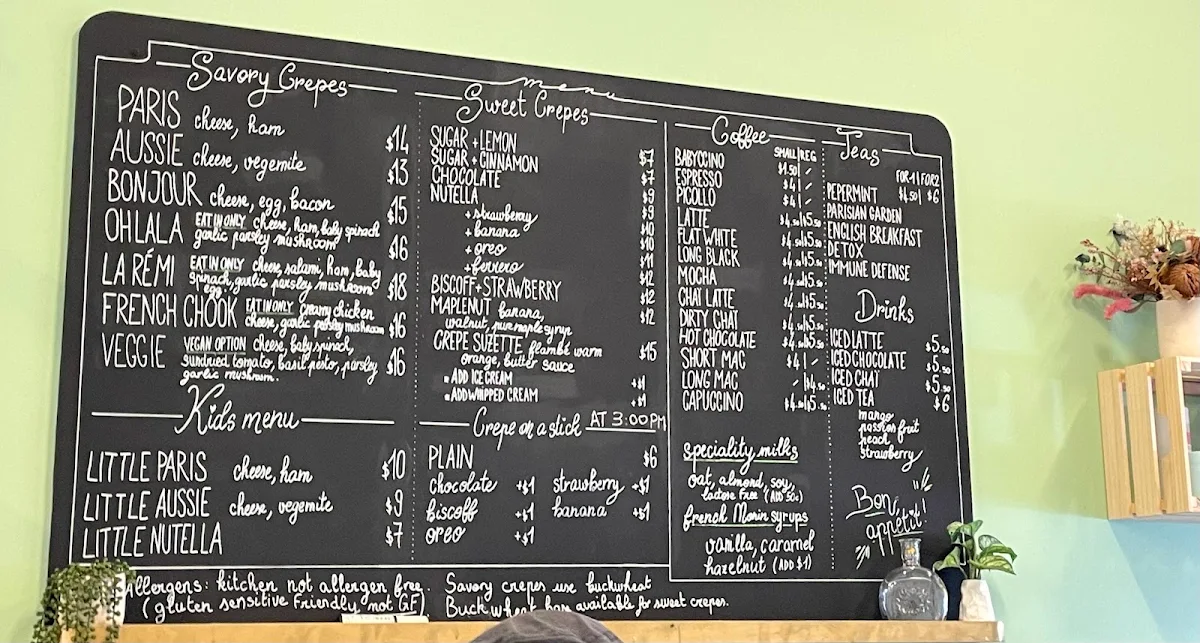 menu
Savory Crepes
PARIS cheese, ham $14
AUSSIE cheese, vegemite $13
BONJOUR cheese, egg, bacon $15
OHLALA EAT IN ONLY cheese, ham, baby spinach
garlic parsley mushroom $16
LA RÉMI EAT IN ONLY cheese, salami, ham, baby
spinach, garlic parsley mushroom $18
egg
FRENCH CHOOK EAT IN ONLY creamy chicken
cheese, garlic parsley mushroom $16
VEGGIE VEGAN OPTION cheese, baby spinach,
sundried tomato, basil pesto, parsley $16
garlic mushroom.
Kids menu
LITTLE PARIS cheese, ham $10
LITTLE AUSSIE cheese, vegemite $9
LITTLE NUTELLA $7
Sweet Crepes
SUGAR + LEMON $7
SUGAR + CINNAMON $7
CHOCOLATE $9
NUTELLA $9
+ strawberry $10
+ banana $10
+ oreo $11
+ ferrero $12
BISCOFF + STRAWBERRY $12
MAPLENUT banana, $12
walnut, pure maple syrup
CREPE SUZETTE flambé warm $15
orange, butter sauce
ADD ICE CREAM +$1
ADD WHIPPED CREAM +$1
Crepe on a stick AT 3:00PM
PLAIN $6
chocolate +$1 strawberry +$1
biscoff +$1 banana +$1
oreo +$1
Coffee
SMALL|REG
BABYCCINO $1.50 /
ESPRESSO $4 | /
PICOLLO $4 | /
LATTE $4.50|$5.50
FLAT WHITE $4.50|$5.50
LONG BLACK $4.50|$5.50
MOCHA $4.50|$5.50
CHAI LATTE $4.50|$5.50
DIRTY CHAI $4.50|$5.50
HOT CHOCOLATE $4.50|$5.50
SHORT MAC $4 | /
LONG MAC / |$4.50
CAPUCCINO $4.50|$5.50
speciality milks
oat, almond, soy,
lactose free (ADD 50c)
french Monin syrups
vanilla, caramel
hazelnut (ADD $1)
Teas
FOR 1|FOR 2
PEPERMINT $4.50| $6
PARISIAN GARDEN
ENGLISH BREAKFAST
DETOX
IMMUNE DEFENSE
Drinks
ICED LATTE $5.50
ICED CHOCOLATE $5.50
ICED CHAI $5.50
ICED TEA $6
mango
passion fruit
peach
strawberry
Bon
appétit!
Allergens: kitchen not allergen free. Savory crepes use buckwheat
(gluten sensitive friendly, not GF). Buckwheat available for sweet crepes.